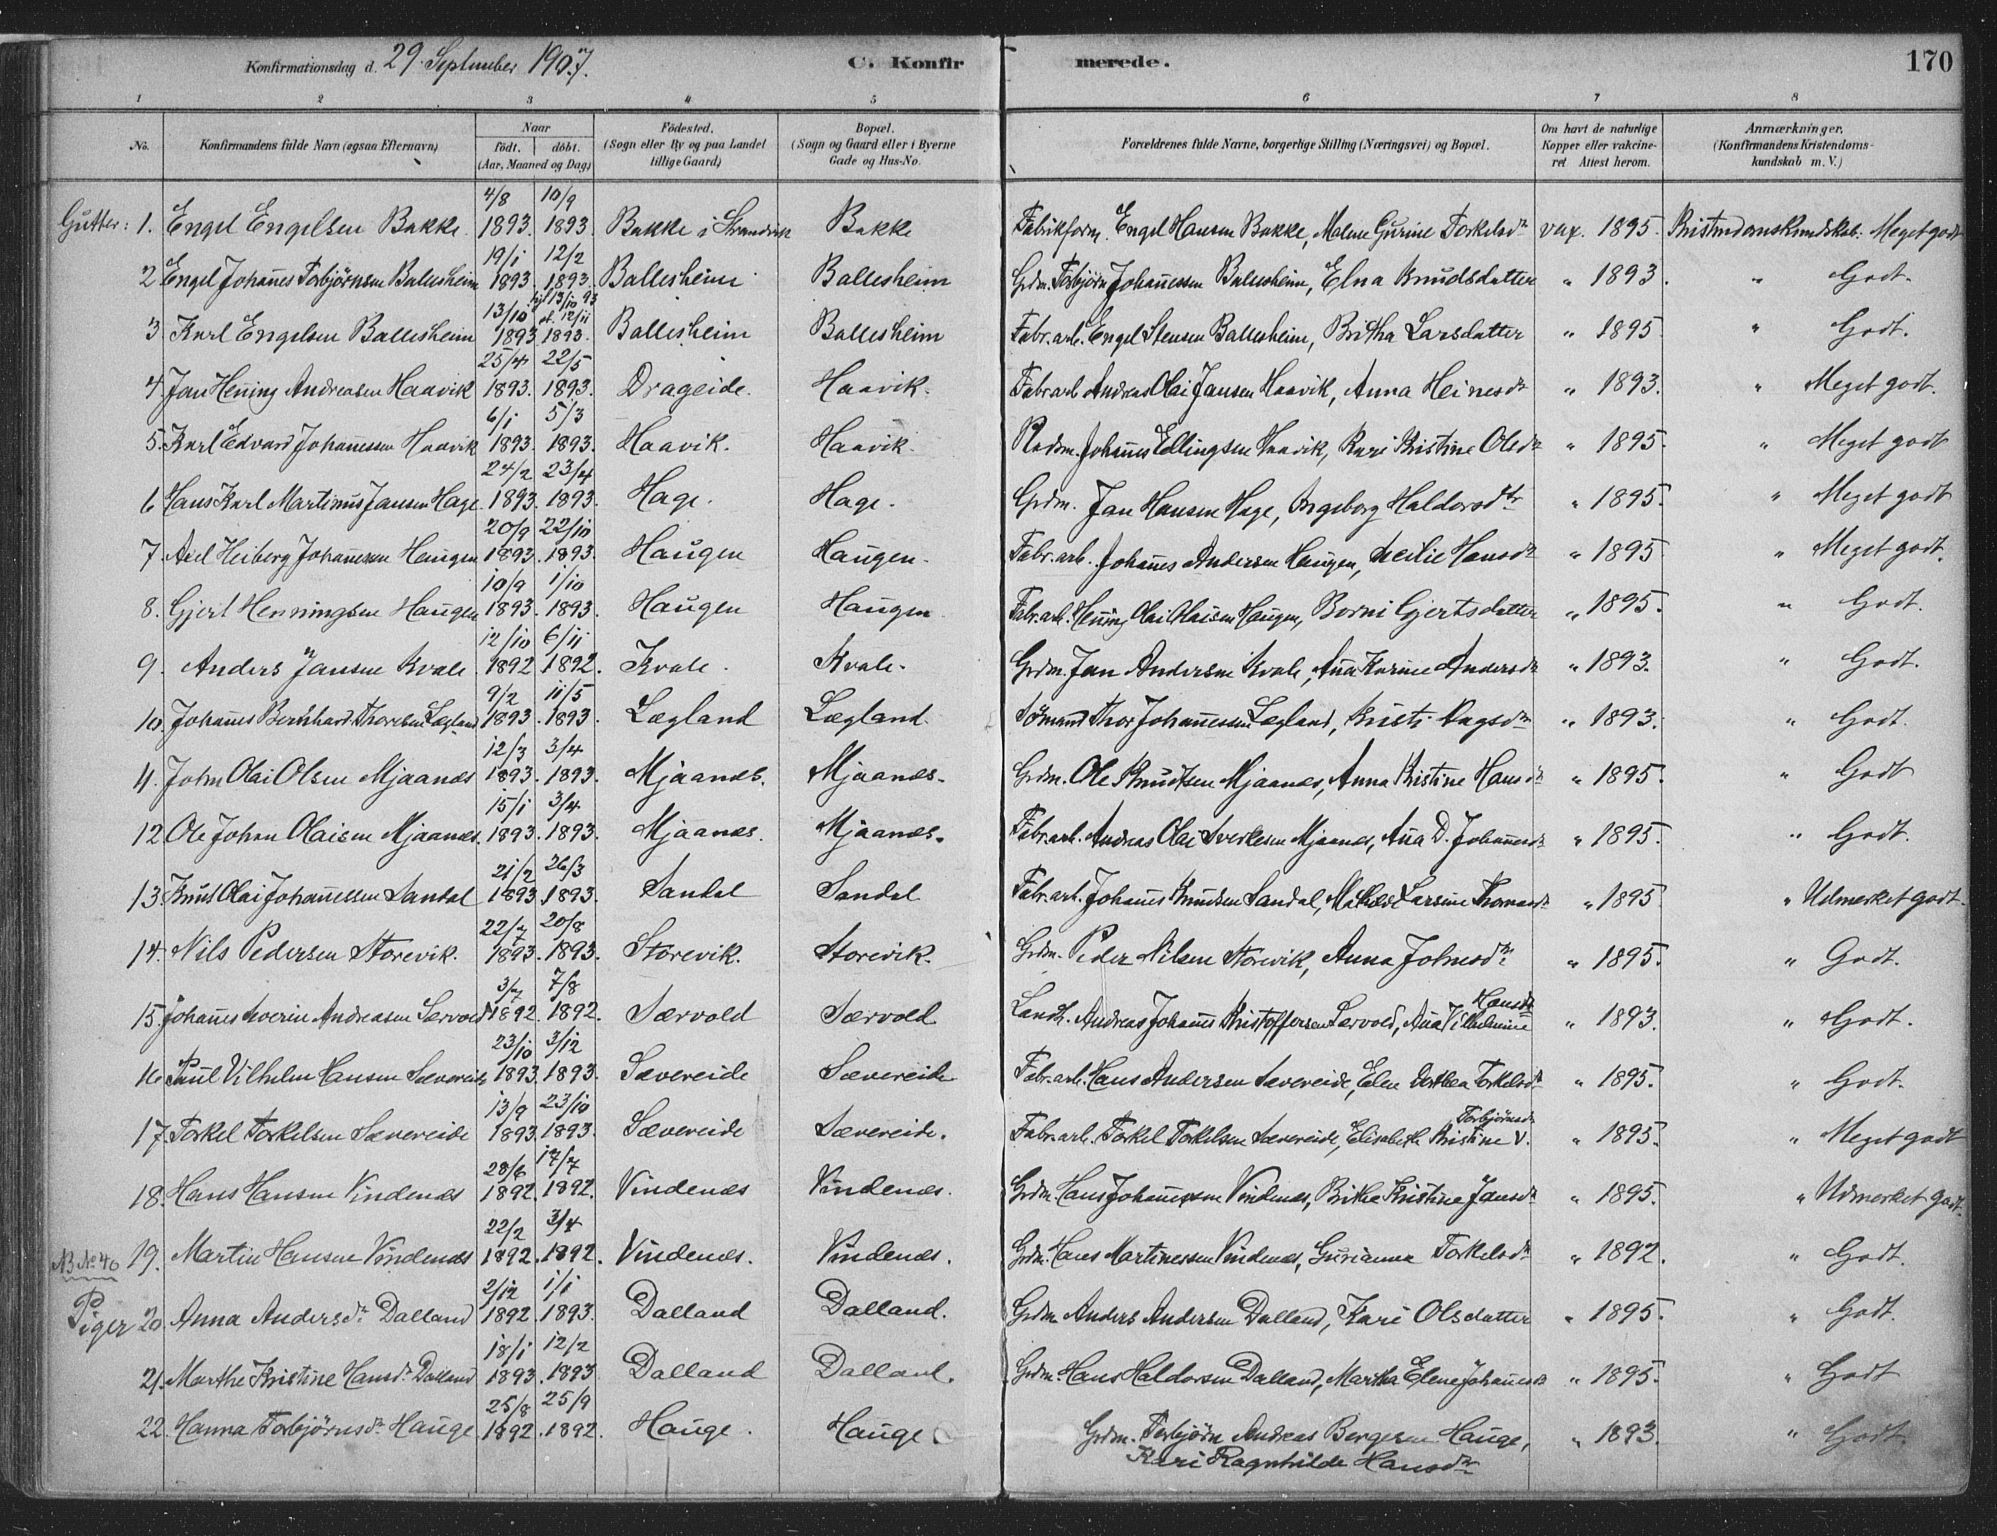 Konfirmationsdag d. 29. September 1907.
C. Konfirmerede.
170
1 2 3 4 5 6 7 8
No.
Konfirmandens fulde Navn (ogsaa Efternavn)
Naar
født. døbt.
(Aar, Maaned og Dag)
Fødested.
(Sogn eller By og paa Landet
tillige Gaard)
Bopæl.
(Sogn og Gaard eller i Byerne
Gade og Hus-No.
Forældrenes fulde Navne, borgerlige Stilling (Næringsvei) og Bopæl.
Om havt de naturlige
Kopper eller vakcine-
ret Attest herom.
Anmærkninger.
(Konfirmandens Kristendoms-
kundskab m. V.)
4/8 10/9
Gutter: 1. Engel Engelsen Bakke 1893. 1893. Bakke i Strandvik Bakke Fabrikform. Engel Hansen Bakke, Malene Gurine Torkelsdr vax. 1895. Kristendomskundskab: Meget godt
19/1 12/2
2 Engel Johañes Torbjørnsen Ballesheim 1893. 1893. Ballesheim Ballesheim Grdm. Torbjørn Johañessen Ballesheim, Elna Knudsdatter " 1893. " Godt.
13/10 hjd 13/10 93 st. 12/11
3 Karl Engelsen Ballesheim 1893 1893. Ballesheim Ballesheim Fabr. arb. Engel Stensen Ballesheim, Britha Larsdatter " 1895 " Godt.
25/4 22/5
4. Jan Hening Andreasen Haavik 1893. 1893. Drageide. Haavik. Fabr arb Andreas Olai Jansen Haavik, Anna Heinesdr " 1893. " Meget godt.
6/1 5/3
5. Karl Edvard Johañessen Haavik 1893. 1893. Haavik. Haavik. Johañes Ellingsen Haavik, Kari Kristine Olsdr " 1895. " Meget godt
24/2 23/4
6 Hans Karl Martinus Jansen Hage 1893. 1893. Hage. Hage. Grdm. Jan Hansen Hage, Ingeborg Haldorsdtr " 1895. " Meget godt
20/9 22/10
7 Axel Heiberg Johañesen Haugen 1893. 1893. Haugen Haugen. Fabr. arb. Johañes Andersen Haugen, Cecilie Hansdr " 1895 " Meget godt.
10/9 1/10
8. Gjert Henningsen Haugen 1893. 1893. Haugen Haugen Fabr. arb. Hening Olai Olaisen Haugen, Berni Gjertsdatter " 1895. " Godt.
12/10 6/11
9. Anders Jansen Kvale 1892 1892. Kvale. Kvale. Grdm. Jan Andersen Kvale, Aña Karine Andersdr " 1893. " Godt.
9/2 11/5
10. Johañes Bernhard Thoresen Lægland 1893. 1893. Lægland Lægland. Sømand Thor Johañessen Lægland, Kristi Aagsdr " 1893. " Godt.
12/3 3/4
11. John Olai Olsen Mjaanæs 1893. 1893. Mjaanæs. Mjaanæs. Grdm. Ole Knudsen Mjaanæs, Anna Kristine Hansdr " 1895. " Godt
15/1 3/4
12 Ole Johan Olaisen Mjaanæs. 1893. 1893. Mjaanæs. Mjaanæs. Fabr. arb. Andreas Olai Sverkesen Mjaanæs, Aña D. Johañesdr " 1895. " Godt.
21/2 26/3
13. Knut Olai Johañessen Sandal 1893. 1893. Sandal Sandal Fabr. arb. Johañes Knudsen Sandal, Larsine Thomasdr " 1895 " Udmerket godt.
22/7 20/8
14. Nils Pedersen Storevik. 1893. 1893. Storevik. Storevik. Grdm. Peder Nilsen Storevik, Anna Johnsdtr " 1895. " Godt.
3/7 7/8
15. Johañes Severin Andreasen Særvold 1892. 1892. Særvold Særvold Landh. Andreas Johañes Kristoffersen Særvold, Aña Vilhelmine Hansdr " 1893. " Godt.
23/10 3/12
16 Paul Vilhelm Hansen Sævereide 1893. 1893. Sævereide Sævereide Fabr. arb. Hans Andersen Sævereide, Elen Dorthea Torkelsdr " 1895. " Godt.
13/9 23/10
17. Torkel Torkelsen Sævereide 1893. 1893. Sævereide Sævereide. Fabr. arb. Torkel Torkelsen Sævereide, Elisabeth Kristine Torbjørnsdr V. " 1895. " Meget godt
28/6 17/7
18. Hans Hansen Vindenæs 1892. 1892. Vindenæs Vindenæs. Grdm. Hans Johañessen Vindenæs, Brithe Kristine Jansdr " 1895. " Udmerket godt.
22/2 3/4
NB No. 40 19. Martin Hansen Vindenæs 1892. 1892. Vindenæs. Vindenæs. Grdm. Hans Martinessen Vindenæs, Gurianna Torkelsdr " 1892. " Godt.
2/12 1/1
Piger 20. Anna Andersdr Dalland 1892. 1893. Dalland Dalland. Grdm Anders Andersen Dalland, Kari Olsdatter " 1895. " Godt.
18/1 12/2
21. Marthe Kristine Hansdr Dalland 1893. 1893 Dalland Dalland. Grdm. Hans Haldorsen Dalland, Martha Elene Johañesdr " 1895. " Godt
25/8 25/9
22. Hanna Torbjørnsdr Hauge 1892. 1892. Hauge. Hauge. Grdm. Torbjørn Andreas Bergesen Hauge, " 1893. " Godt.
Kari Ragnhilde Hansdr